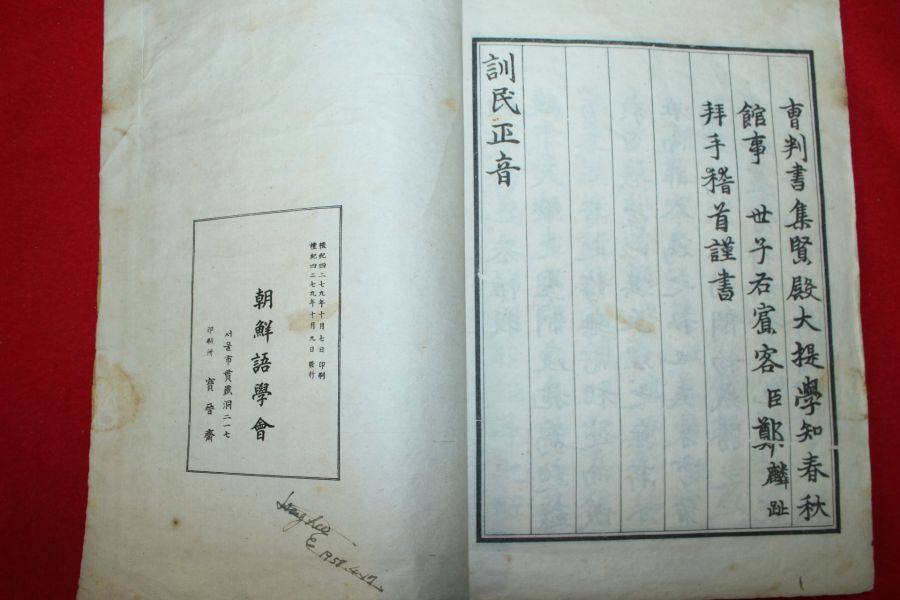 曺判書集賢殿大提學知春秋
館事 世子右賓客臣鄭麟趾
拜手稽首謹書
訓民正音
檀紀四二七九年十月七日 印刷
檀紀四二七九年十月九日 發行
朝鮮語學會
서울市貫鐵洞二一七
印刷所 寶晉齋
1958.4.17.